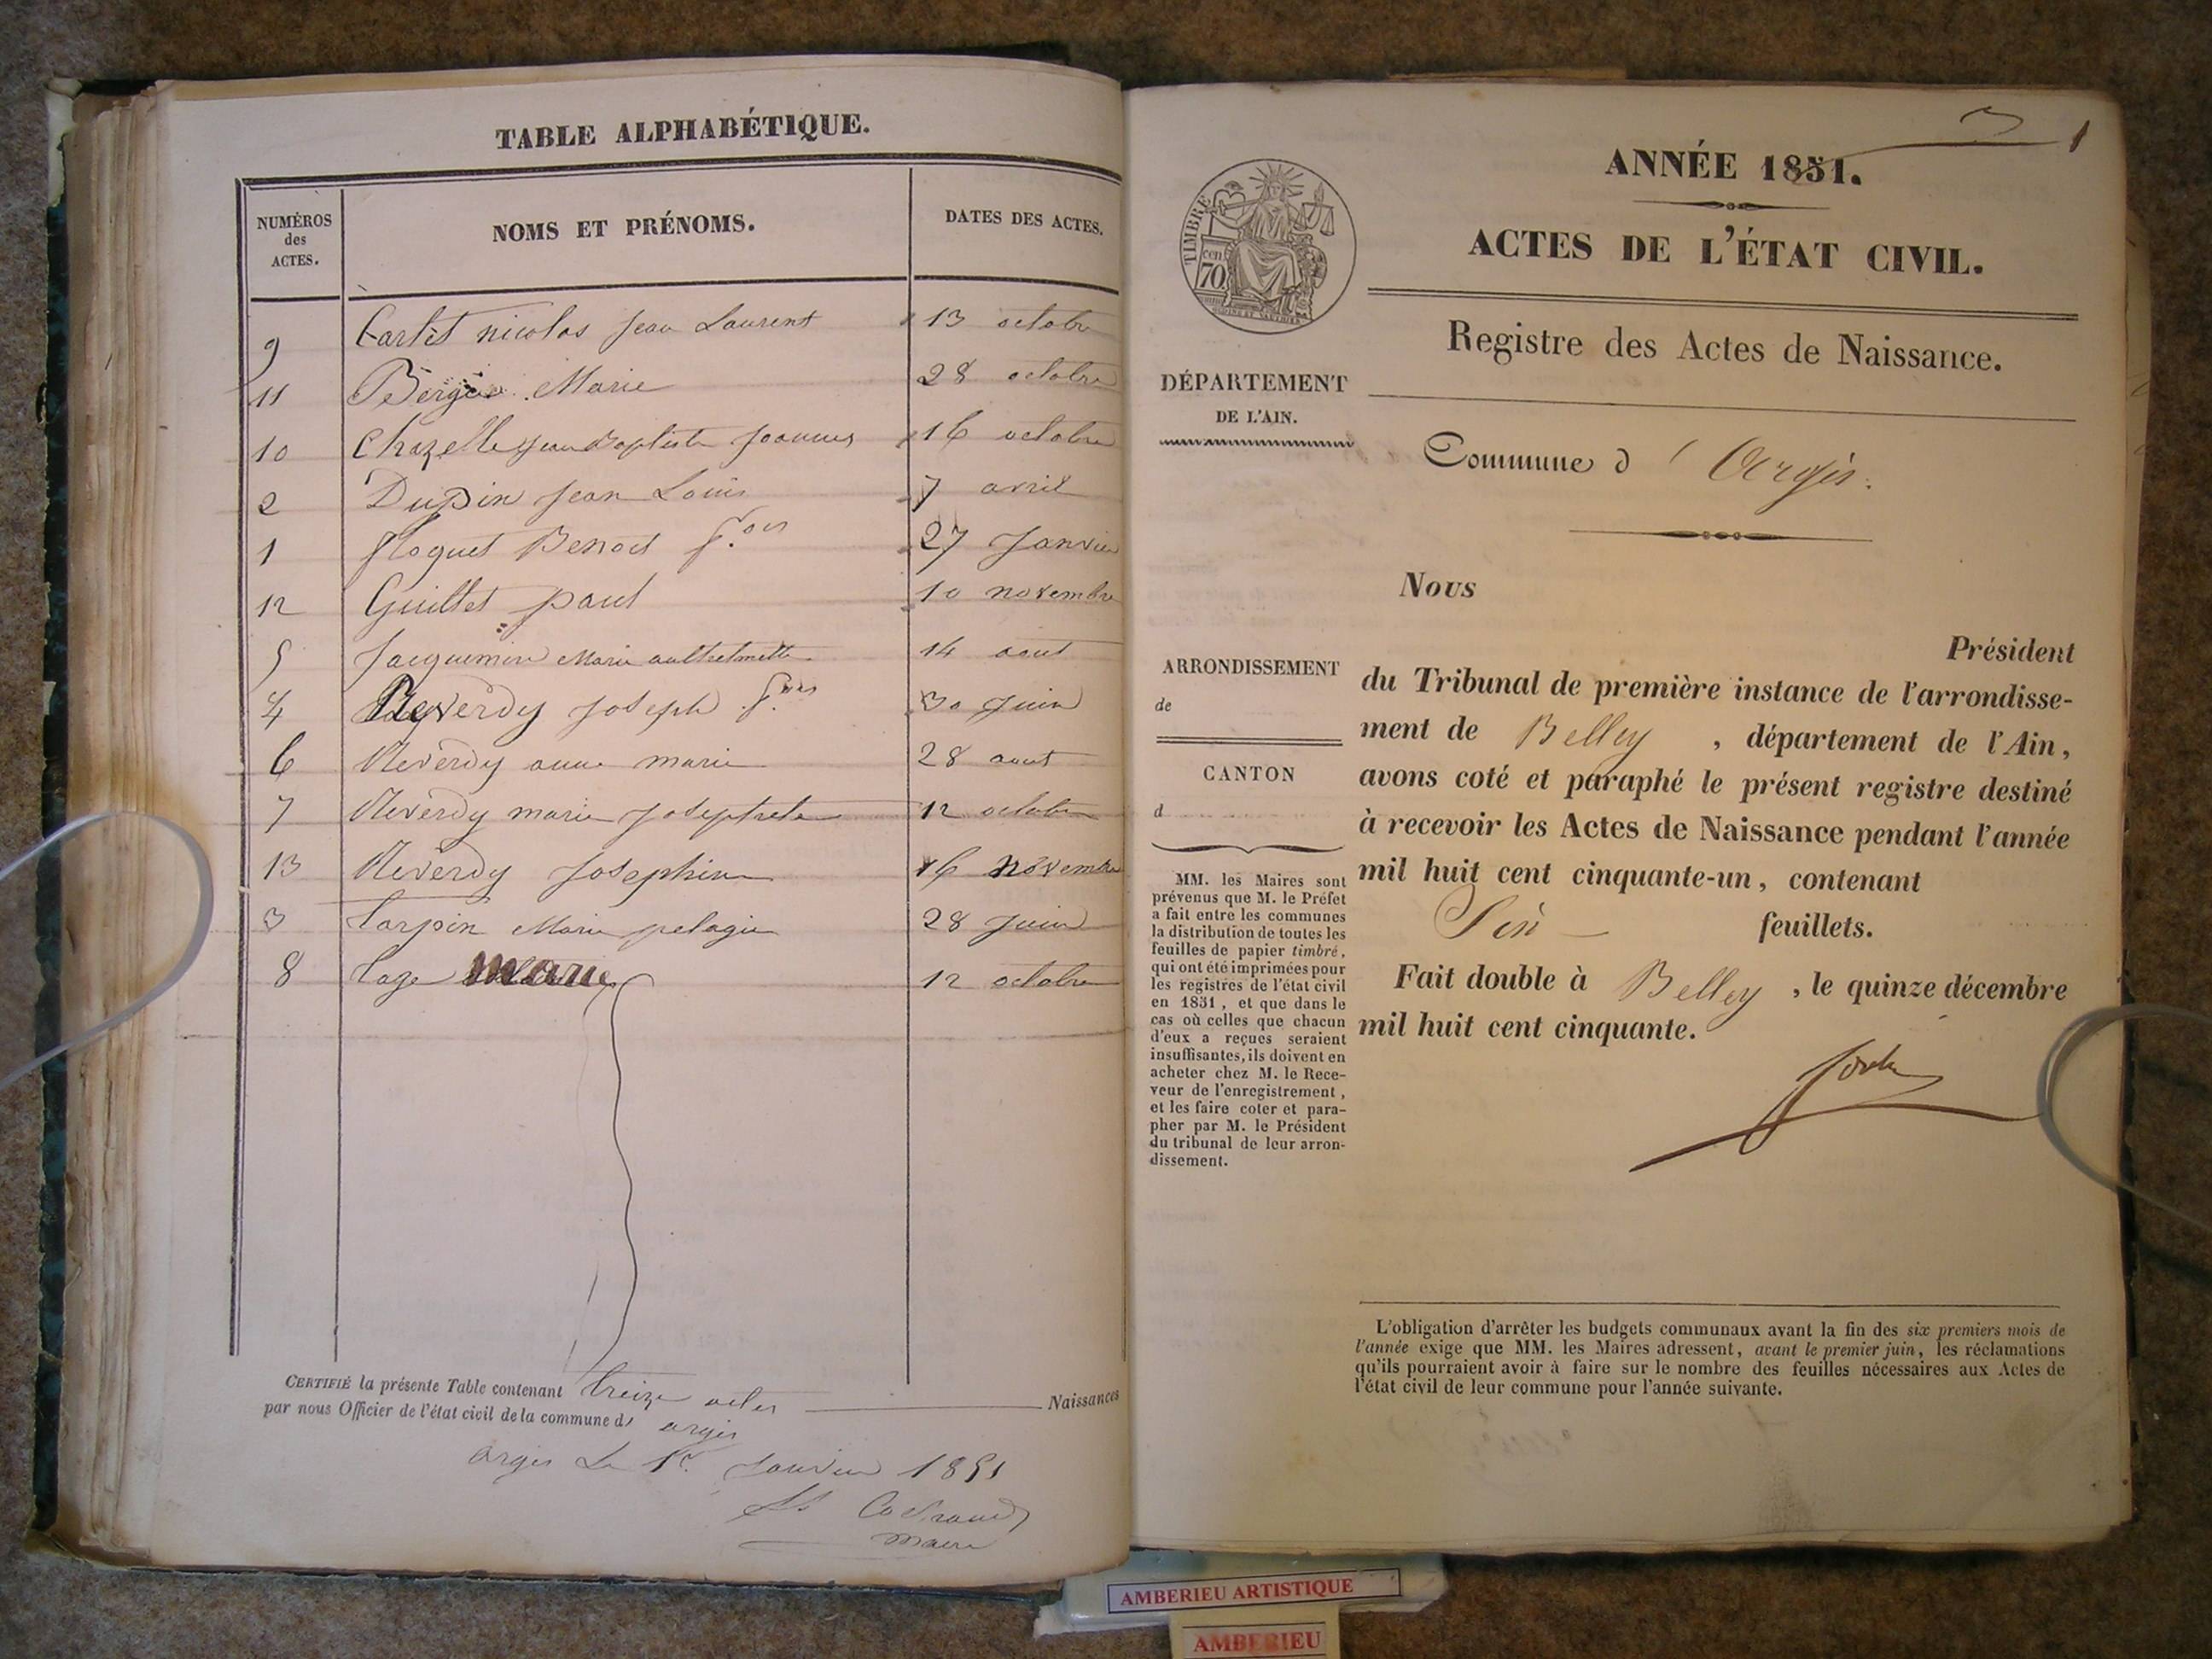 TABLE ALPHABÉTIQUE.
NUMÉROS
des
ACTES.
NOMS ET PRÉNOMS.
DATES DES ACTES.
9 nicolas Jean Laurent 13 octobre
11 Marie 28 octobre
10 Chazelle Jean Baptiste Joannes 16 octobre
2 Dupin Jean Louis 7 avril
1 Floquet Benoit f.ois 27 Janvier
12 Guillet paul 10 novembre
5 Jacquemin Marie 14 aout
4 Reverdy Joseph f.ois 30 Juin
6 Reverdy anne marie 28 aout
7 Reverdy marie 12 octobre
13 Reverdy Josephine 16 novembre
3 Tarpin Marie pelagie 28 Juin
8 marie 12 octobre
CERTIFIÉ la présente Table contenant treize actes Naissances
par nous Officier de l'état civil de la commune d' argis
argis Le 1er Janvier 1851
maire
1
ANNÉE 1851.
ACTES DE L'ÉTAT CIVIL.
TIMBRE
70 cen
Registre des Actes de Naissance.
DÉPARTEMENT
DE L'AIN.
Commune d' Argis.
Nous
Président
du Tribunal de première instance de l'arrondisse-
ment de Belley, département de l'Ain,
avons coté et paraphé le présent registre destiné
à recevoir les Actes de Naissance pendant l'année
mil huit cent cinquante-un, contenant
feuillets.
Fait double à Belley, le quinze décembre
mil huit cent cinquante.
ARRONDISSEMENT
de
CANTON
d
MM. les Maires sont
prévenus que M. le Préfet
a fait entre les communes
la distribution de toutes les
feuilles de papier timbré,
qui ont été imprimées pour
les registres de l'état civil
en 1851, et que dans le
cas où celles que chacun
d'eux a reçues seraient
insuffisantes, ils doivent en
acheter chez M. le Rece-
veur de l'enregistrement,
et les faire coter et para-
pher par M. le Président
du tribunal de leur arron-
dissement.
L'obligation d'arrêter les budgets communaux avant la fin des six premiers mois de
l'année exige que MM. les Maires adressent, avant le premier juin, les réclamations
qu'ils pourraient avoir à faire sur le nombre des feuilles nécessaires aux Actes de
l'état civil de leur commune pour l'année suivante.
AMBERIEU ARTISTIQUE
AMBERIEU